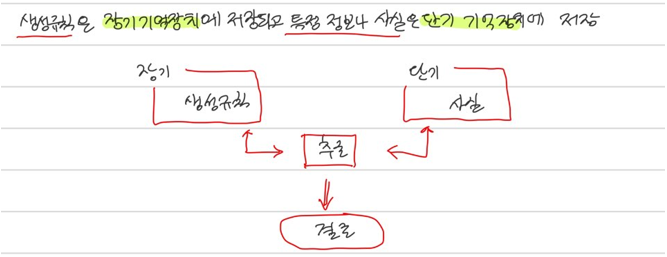 생성규칙은 장기기억장치에 저장되고 특정 정보나 사실은 단기 기억장치에 저장
장기 단기
생성규칙 사실
추론
결론